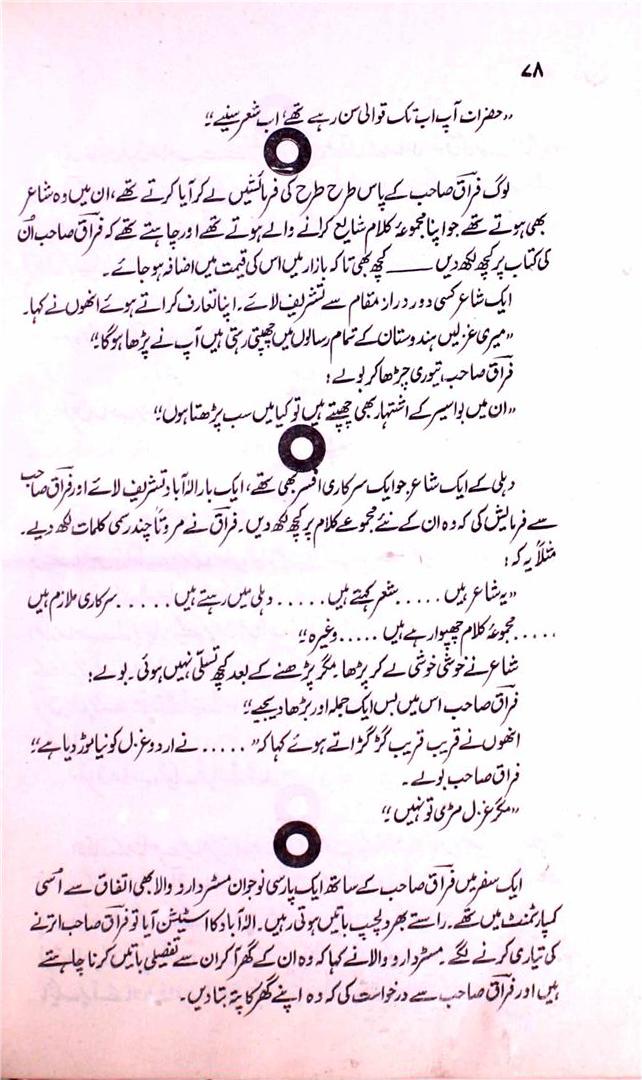 ۷۸
”حضرات آپ اب تک قوالی سن رہے تھے، اب شعر سنیے۔“
لوگ فراقؔ صاحب کے پاس طرح طرح کی فرمائشیں لے کر آیا کرتے تھے، ان میں وہ شاعر
بھی ہوتے تھے جو اپنا مجموعۂ کلام شایع کرانے والے ہوتے تھے اور چاہتے تھے کہ فراقؔ صاحب اُن
کی کتاب پر کچھ لکھ دیں ——— کچھ بھی تاکہ بازار میں اس کی قیمت میں اضافہ ہو جائے۔
ایک شاعر کسی دور دراز مقام سے تشریف لائے۔ اپنا تعارف کراتے ہوئے انھوں نے کہا۔
”میری غزلیں ہندوستان کے تمام رسالوں میں چھپتی رہتی ہیں آپ نے پڑھا ہوگا۔“
فراقؔ صاحب، تیوری چڑھا کر بولے؛
”ان میں بواسیر کے اشتہار بھی چھپتے ہیں تو کیا میں سب پڑھتا ہوں۔“
دہلی کے ایک شاعر جو ایک سرکاری افسر بھی تھے، ایک بار الٰہ آباد تشریف لائے اور فراقؔ صاحب
سے فرمایش کی کہ وہ ان کے نئے مجموعے کلام پر کچھ لکھ دیں۔ فراقؔ نے مروتاً چند رسمی کلمات لکھ دیے۔
مثلاً یہ کہ:
”یہ شاعر ہیں ..... شعر کہتے ہیں ..... دہلی میں رہتے ہیں ..... سرکاری ملازم ہیں
..... مجموعۂ کلام چھپوا رہے ہیں ..... وغیرہ۔“
شاعر نے خوشی خوشی لے کر پڑھا مگر پڑھنے کے بعد کچھ تسلّی نہیں ہوئی۔ بولے؛
فراقؔ صاحب اس میں بس ایک جملہ اور بڑھا دیجیے۔“
انھوں نے قریب قریب گڑگڑاتے ہوئے کہا کہ ”..... نے اردو غزل کو نیا موڑ دیا ہے۔“
فراق صاحب بولے۔
”مگر غزل مڑی تو نہیں۔“
ایک سفر میں فراقؔ صاحب کے ساتھ ایک پارسی نوجوان مسٹر دارو والا بھی اتفاق سے اُسی
کمپارٹمنٹ میں تھے۔ راستے بھر دلچسپ باتیں ہوتی رہیں۔ الٰہ آباد کا اسٹیشن آیا تو فراقؔ صاحب اترنے
کی تیاری کرنے لگے۔ مسٹر دارو والا نے کہا کہ وہ ان کے گھر آ کر ان سے تفصیلی باتیں کرنا چاہتے
ہیں اور فراقؔ صاحب سے درخواست کی کہ وہ اپنے گھر کا پتہ بتا دیں۔